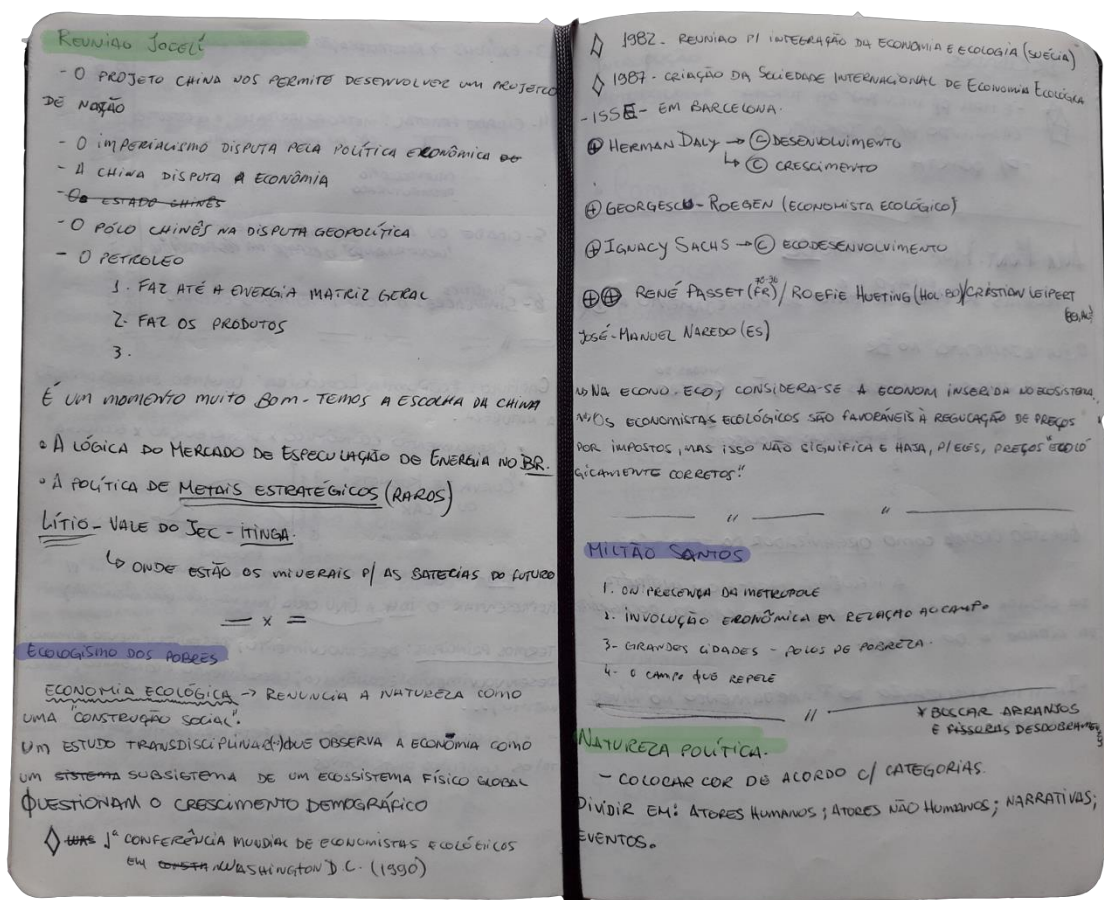 REUNIÃO JOCELÍ
- O PROJETO CHINA NOS PERMITE DESENVOLVER UM PROJETO
DE NAÇÃO
- O IMPERIALISMO DISPUTA PELA POLÍTICA ECONÔMICA
- A CHINA DISPUTA A ECONÔMIA
- O ESTADO CHINÊS
- O PÓLO CHINÊS NA DISPUTA GEOPOLÍTICA
- O PETROLEO
1. FAZ ATÉ A ENERGIA MATRIZ GERAL
2. FAZ OS PRODUTOS
3.
É UM MOMENTO MUITO BOM - TEMOS A ESCOLHA DA CHINA
• A LÓGICA DO MERCADO DE ESPECULAÇÃO DE ENERGIA NO BR.
• A POLÍTICA DE METAIS ESTRATÉGICOS (RAROS)
LÍTIO - VALE DO JEC - ITINGA.
↳ ONDE ESTÃO OS MINERAIS P/ AS BATERIAS DO FUTURO
= x =
ECOLOGISMO DOS POBRES
ECONOMIA ECOLÓGICA -> RENUNCIA A NATUREZA COMO
UMA "CONSTRUÇÃO SOCIAL".
UM ESTUDO TRANSDISCIPLINAR(-) QUE OBSERVA A ECONÔMIA COMO
UM SISTEMA SUBSISTEMA DE UM ECOSSISTEMA FÍSICO GLOBAL
QUESTIONAM O CRESCIMENTO DEMOGRÁFICO
◊ WAS 1ª CONFERÊNCIA MUNDIAL DE ECONOMISTAS ECOLÓGICOS
EM WASHINGTON D.C. (1990)
◊ 1982 - REUNIÃO P/ INTEGRAÇÃO DA ECONOMIA E ECOLOGIA (SUÉCIA)
◊ 1987 - CRIAÇÃO DA SOCIEDADE INTERNACIONAL DE ECONOMIA ECOLÓGICA
- ISSE - EM BARCELONA.
⊕ HERMAN DALY → © DESENVOLVIMENTO
↳ © CRESCIMENTO
⊕ GEORGESCU - ROEGEN (ECONOMISTA ECOLÓGICO)
⊕ IGNACY SACHS → © ECODESENVOLVIMENTO
⊕⊕ RENÉ PASSET (FR) / ROEFIE HUETING (HOL) / CRISTIAN LEIPERT
JOSÉ-MANUEL NAREDO (ES)
NA ECONO. ECO, CONSIDERA-SE A ECONOM INSERIDA NO ECOSISTEMA.
OS ECONOMISTAS ECOLÓGICOS SÃO FAVORÁVEIS À REGULAÇÃO DE PREÇOS
POR IMPOSTOS, MAS ISSO NÃO SIGNIFICA E HAJA, P/ ELES, PREÇOS "ECOLÓ
GICAMENTE CORRETOS".
MILTÃO SANTOS
1. ONIPRESENÇA DA METROPOLE
2. INVOLUÇÃO ECONÔMICA EM RELAÇÃO AO CAMPO
3- GRANDES CIDADES - POLOS DE POBREZA.
4- O CAMPO QUE REPELE
* BUSCAR ARRANJOS
E FISSURAS DESDOBRAMENTOS
NATUREZA POLÍTICA.
- COLOCAR COR DE ACORDO C/ CATEGORIAS.
DIVIDIR EM: ATORES HUMANOS; ATORES NÃO HUMANOS; NARRATIVAS;
EVENTOS.